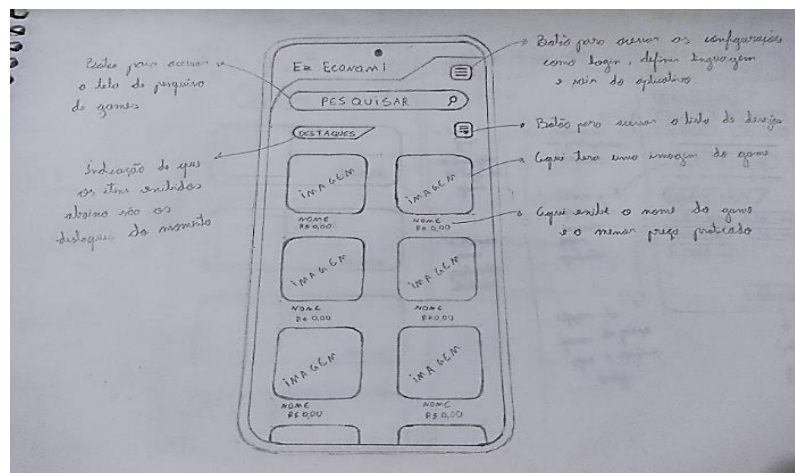 Botão para acessar
a tela de pesquisa
de games
Indicação de que
os itens exibidos
abaixo são os
destaques do momento
Ez Economi
PESQUISAR
DESTAQUES
IMAGEM
IMAGEM
NOME
R$ 0,00
NOME
R$ 0,00
IMAGEM
IMAGEM
NOME
R$ 0,00
NOME
R$ 0,00
IMAGEM
IMAGEM
NOME
R$ 0,00
NOME
R$ 0,00
Botão para acessar as configurações
como login, definir linguagem
e sair do aplicativo.
Botão para acessar a lista de desejos
Aqui tera uma imagem do game
Aqui exibe o nome do game
e o menor preço praticado